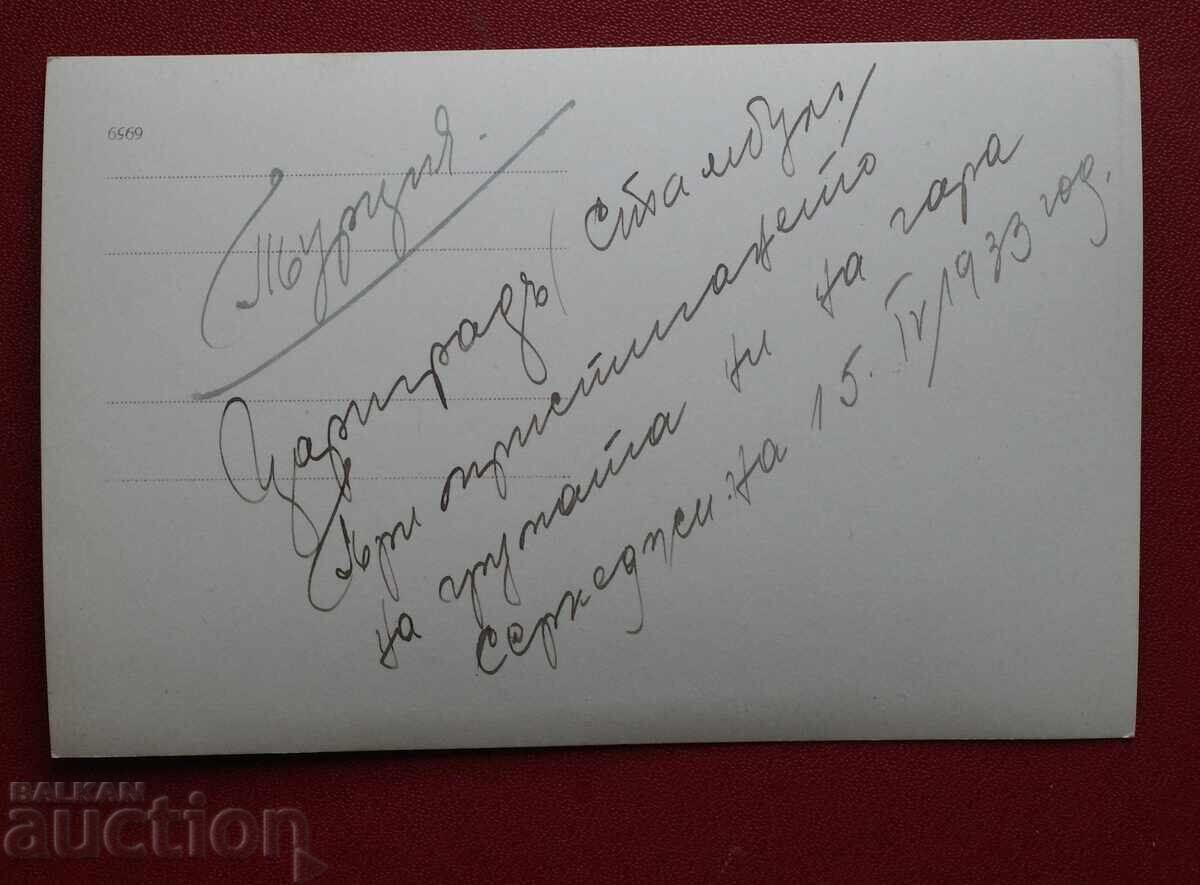 6959
Турция.
Цариградъ (Стамбулъ)
При пристигането
на групата ни на гара
Серкеджи на 15.IV/1933 год.
BALKAN
auction